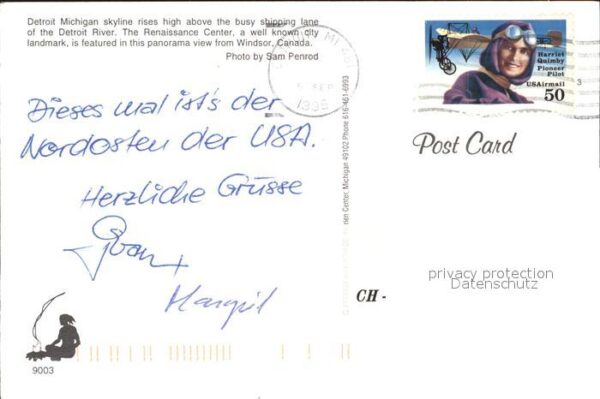 Detroit Michigan skyline rises high above the busy shipping lane
of the Detroit River. The Renaissance Center, a well known city
landmark, is featured in this panorama view from Windsor, Canada.
Photo by Sam Penrod
Dieses mal ist's der
Nordosten der USA.
Herzliche Grüsse
+
Margrit
9003
rien Center, Michigan 49102 Phone 616-461-6993
MI 491
SEP
1996
Harriet
Quimby
Pioneer
Pilot
USAirmail
50
3
Post Card
privacy protection
Datenschutz
CH -